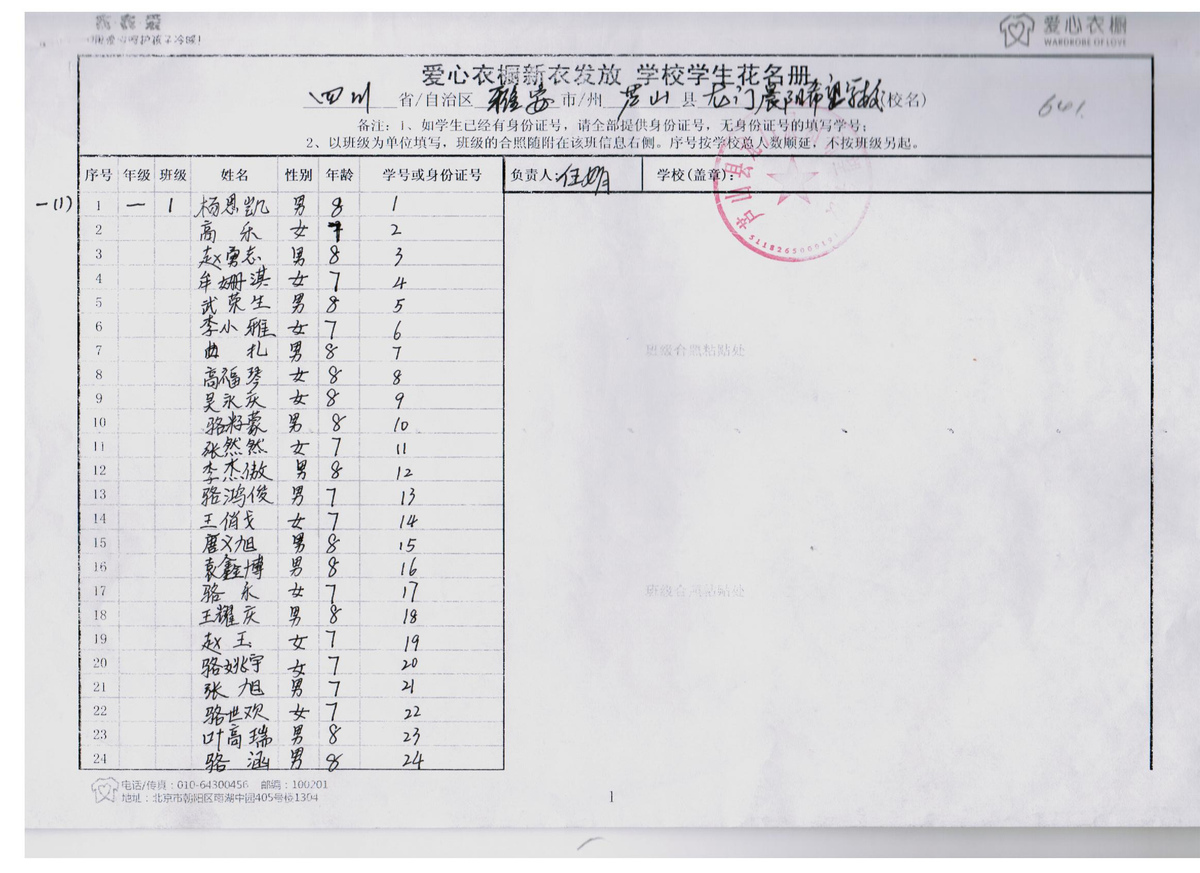 爱心衣橱
WARDROBE OF LOVE
爱心衣橱新衣发放 学校学生花名册
四川 省/自治区 雅安 市/州 芦山 县 龙门晨阳希望学校(校名)
641
备注:1、如学生已经有身份证号,请全部提供身份证号,无身份证号的填写学号;
2、以班级为单位填写,班级的合照随附在该班信息右侧。序号按学校总人数顺延,不按班级另起。
序号 年级 班级 姓名 性别 年龄 学号或身份证号 负责人: 学校(盖章):
一(1) 1 一 1 杨恩凯 男 8 1
2 高乐 女 7 2
3 赵勇志 男 8 3
4 牟姗淇 女 7 4
5 武荣生 男 8 5
6 李小雅 女 7 6
7 曲扎 男 8 7
班级合照粘贴处
8 高福琴 女 8 8
9 吴永庆 女 8 9
10 骆籽蒙 男 8 10
11 张然然 女 7 11
12 李杰傲 男 8 12
13 骆鸿俊 男 7 13
14 王俏戈 女 7 14
15 唐义旭 男 8 15
16 袁鑫博 男 8 16
17 骆永 女 7 17
班级合照粘贴处
18 王耀庆 男 8 18
19 赵玉 女 7 19
20 骆姚宇 女 7 20
21 张旭 男 7 21
22 骆世欢 女 7 22
23 叶高瑞 男 8 23
24 骆涵 男 8 24
电话/传真:010-64300456 邮编:100201
地址:北京市朝阳区南湖中园405号楼1304
1